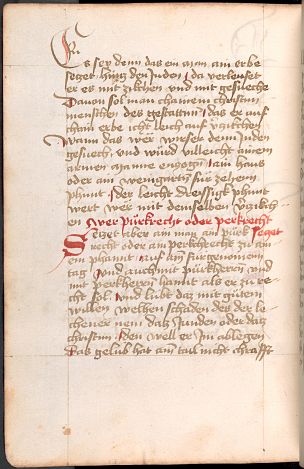 Es sey denn das ein man am erbe
seczet hincz den Juden da verleuset
er es mit zikchen vnd mit gesueche
Dauon sol man chainem christen
menschen des gestatten das er auf
cham erbe icht leich auf
Wann das wer wirser denn Juden
gesuech vnd wurd villeicht ainem
armen manne ain haus
oder ain weingarten fur zehen
phunt der leicht dreissigk phunt
wert wer mit demselben
wer purkrecht oder perkrecht
Seczet aber ain man ain purk seczet
recht oder ain perkchrecht zu ain
em phannt auf ain furgenomen
tag vnd auch mit purkherren vnd
mit perkherren hannt als er zu re
cht sol vnd lubt daz mit gutem
willen welhen schaden des der le
chener nem datz Juden oder datz
christen den well er im ablegen
Das gelub hat ain tail nicht chrafft